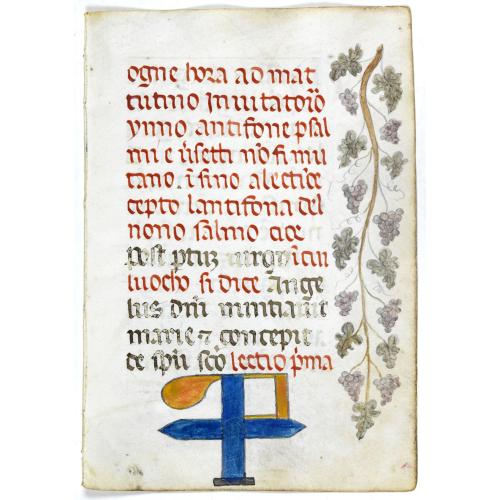 ogne hora ad mat
tutino Inuitatorio
ynno antifone psal
mi e v̄setti nō si mu
tano. īsino a lectiōe
cepto lantifona del
nono salmo cioe
post ptuȝ uirgo īcui
luocho si dice Ānge
lus dm̄ nuntiauit
marie ⁊ concepit
de spū scō lectio p̄ma